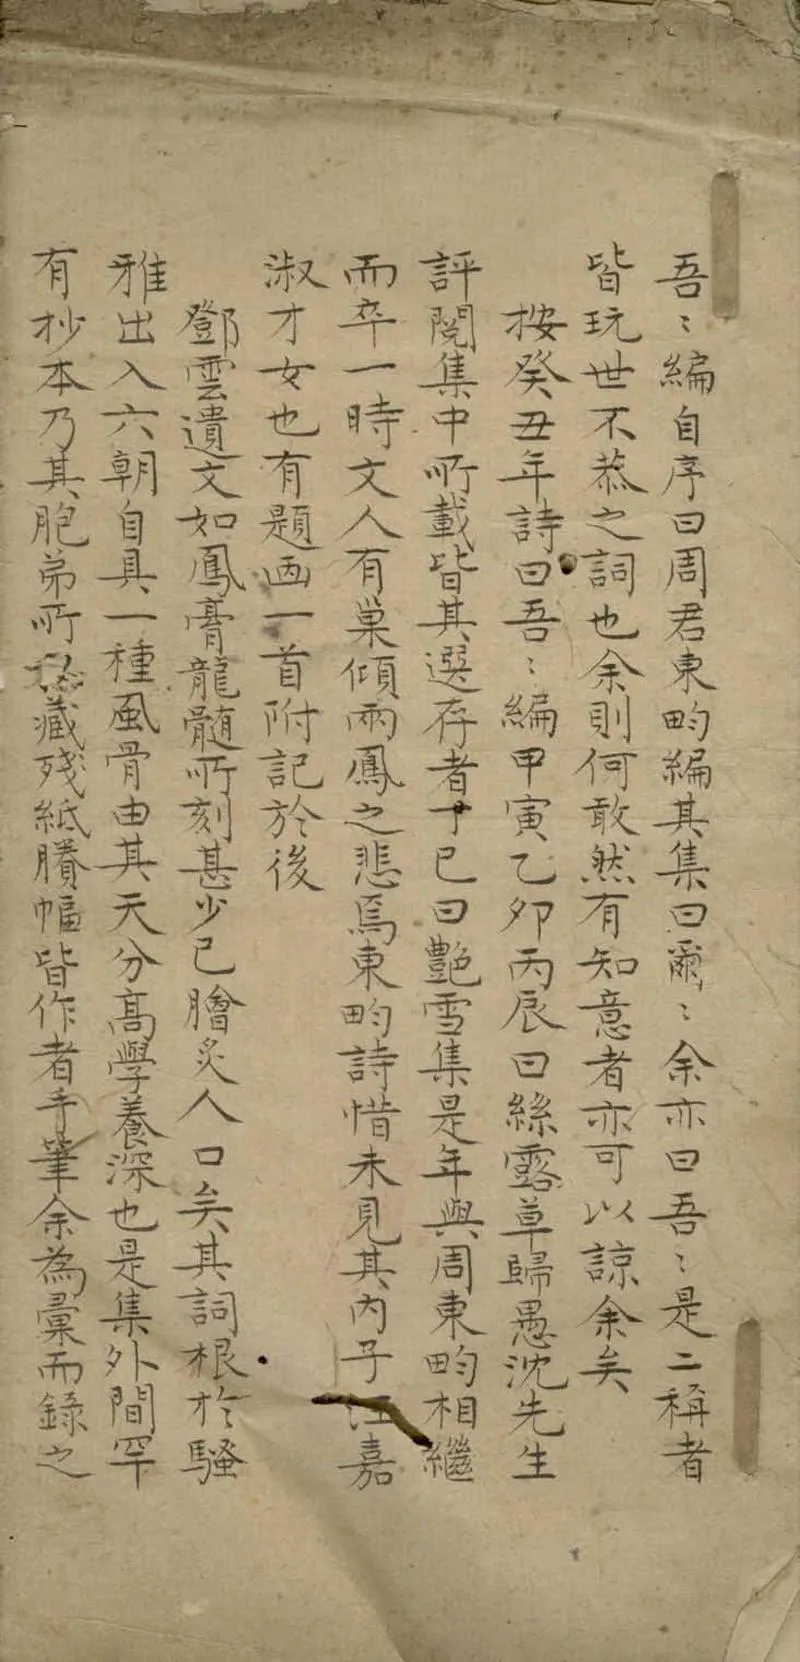 吾〻編自序曰周君東畇編其集曰爾〻余亦曰吾〻是二稱者
皆玩世不恭之詞也余則何敢然有知意者亦可以諒余矣
按癸丑年詩曰吾〻編甲寅乙卯丙辰曰絲露草歸愚沈先生
評閱集中所載皆其選存者丁巳曰艷雪集是年與周東畇相繼
而卒一時文人有巢傾兩鳳之悲焉東畇詩惜未見其内子江嘉
淑才女也有題画一首附記於後
鄧雲遺文如鳳膏龍髓所刻甚少已膾炙人口矣其詞根於騷
雅出入六朝自具一種風骨由其天分高學養深也是集外間罕
有抄本乃其胞弟所秘藏殘紙賸幅皆作者手筆余為彙而錄之